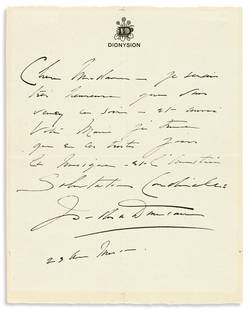 DIONYSION
Chère Madame — je serais
très heureuse que vous
venez ce soir — et aussi
Votre Mari je trouve
que en ces tristes jours
la musique et l'
Salutations Cordiales
Isadora Duncan
23